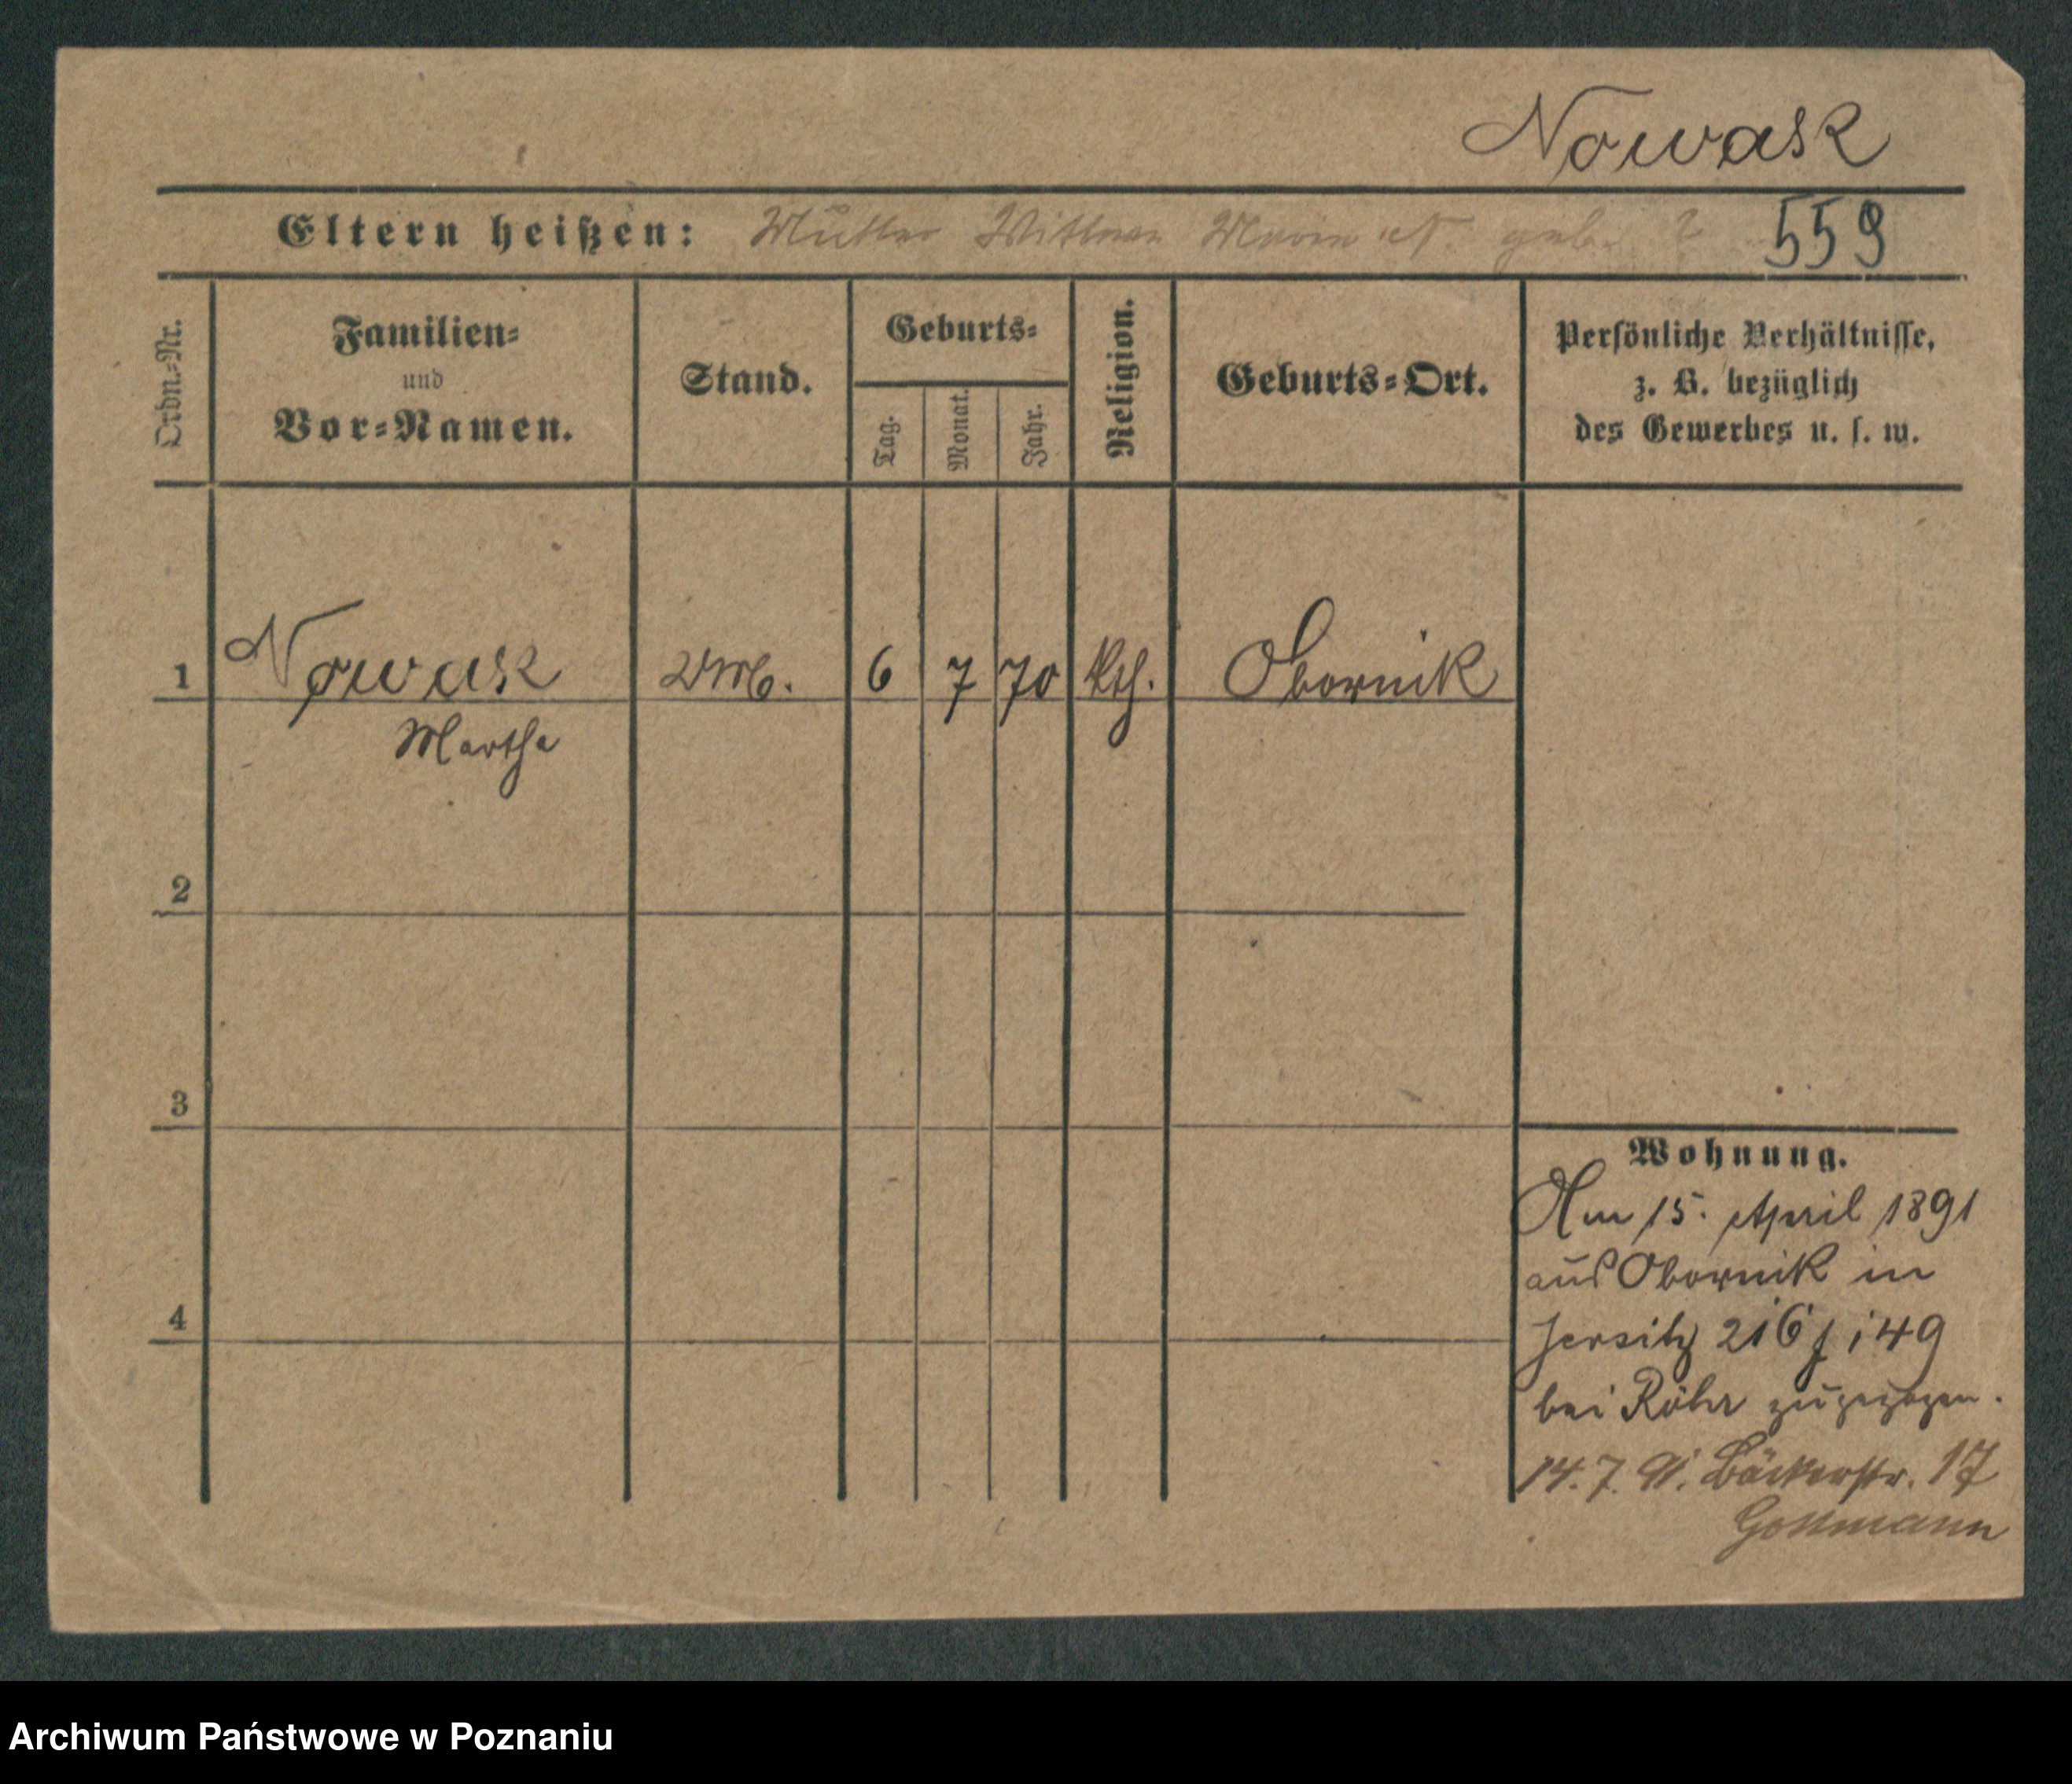 Nowak
Eltern heißen: Mutter Wittwe N. geb. ? 559
Ordn.-Nr.
Familien-
und
Vor-Namen.
Stand.
Geburts-
Tag.
Monat.
Jahr.
Religion.
Geburts-Ort.
Persönliche Verhältnisse,
z. B. bezüglich
des Gewerbes u. s. w.
1 Nowak 6 7 70 kth. Obornik
Martha
2
3
4
Wohnung.
Am 15. April 1891
aus Obornik in
Jersitz 149
bei Röhr zugezogen.
14. 7. 91. Bäckerstr. 17